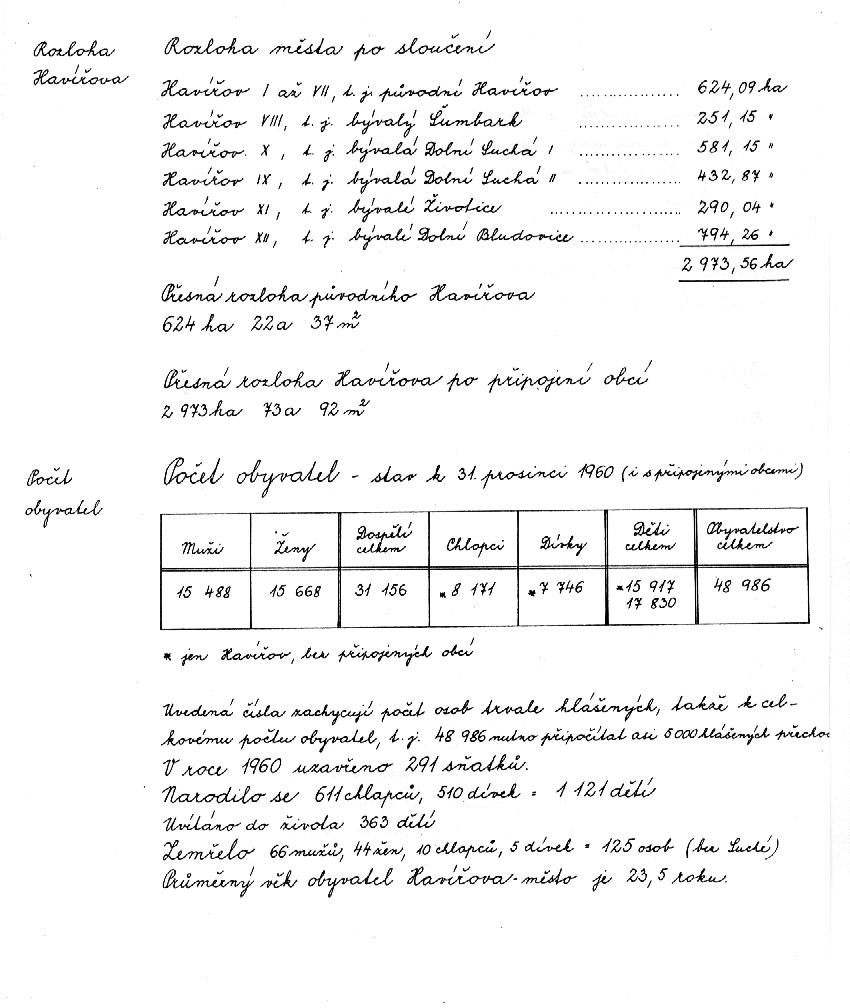 Rozloha
Havířova
Rozloha města po sloučení
Havířov I až VII, t. j. původní Havířov ................. 624,09 ha
Havířov VIII, t. j. bývalý Šumbark ................. 251,15 "
Havířov X, t. j. bývalá Dolní Suchá I ................. 581,15 "
Havířov IX, t. j. bývalá Dolní Suchá II ................. 432,87 "
Havířov XI, t. j. bývalé Životice ...................... 290,04 "
Havířov XII, t. j. bývalé Dolní Bludovice ................. 794,26 "
2 973,56 ha
Přesná rozloha původního Havířova
624 ha 22 a 37 m²
Přesná rozloha Havířova po připojení obcí
2 973 ha 73 a 92 m²
Počet
obyvatel
Počet obyvatel - stav k 31. prosinci 1960 (i s připojenými obcemi)
Muži Ženy Dospělí celkem Chlapci Dívky Děti celkem Obyvatelstvo celkem
15 488 15 668 31 156 * 8 171 * 7 746 * 15 917 48 986
17 830
* jen Havířov, bez připojených obcí
Uvedená čísla zachycují počet osob trvale hlášených, takže k cel-
kovému počtu obyvatel, t. j. 48 986 nutno připočítat asi 5 000 hlášených přecho
V roce 1960 uzavřeno 291 sňatků.
Narodilo se 611 chlapců, 510 dívek = 1 121 dětí
Uvítáno do života 363 dětí
Zemřelo 66 mužů, 44 žen, 10 chlapců, 5 dívek = 125 osob (bez Suché)
Průměrný věk obyvatel Havířova-město je 23,5 roku.